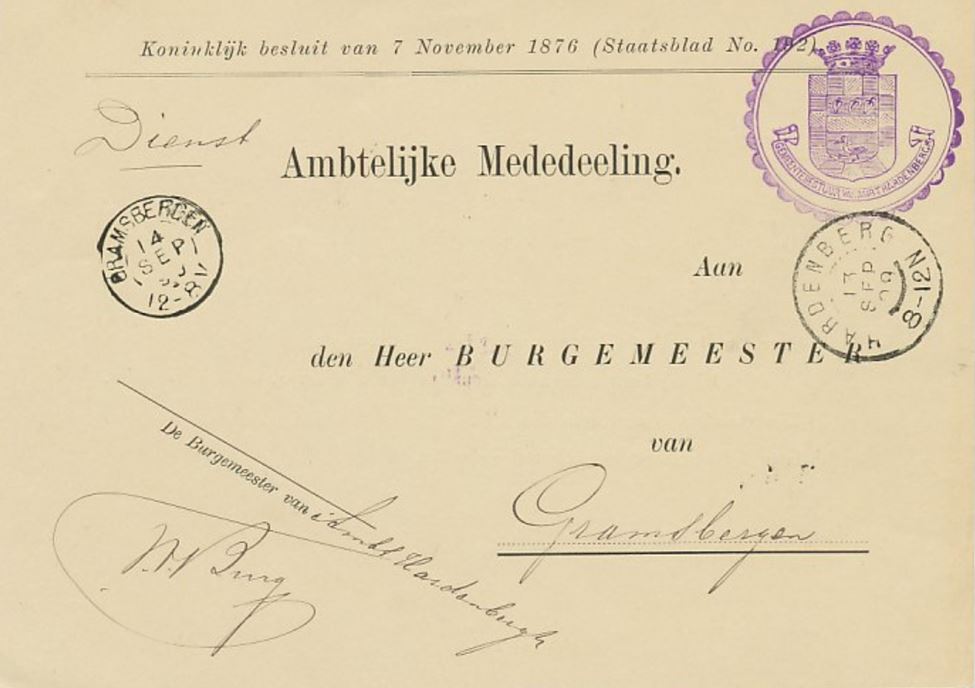 Koninklijk besluit van 7 November 1876 (Staatsblad No. 192).
Dienst
Ambtelijke Mededeeling.
GEMEENTEBESTUUR AMBT HARDENBERGH
GRAMSBERGEN
14
SEP
12-8V
HARDENBERG
8-12N
13
SEP
Aan
den Heer BURGEMEESTER
van
Gramsbergen
De Burgemeester van Ambt Hardenbergh